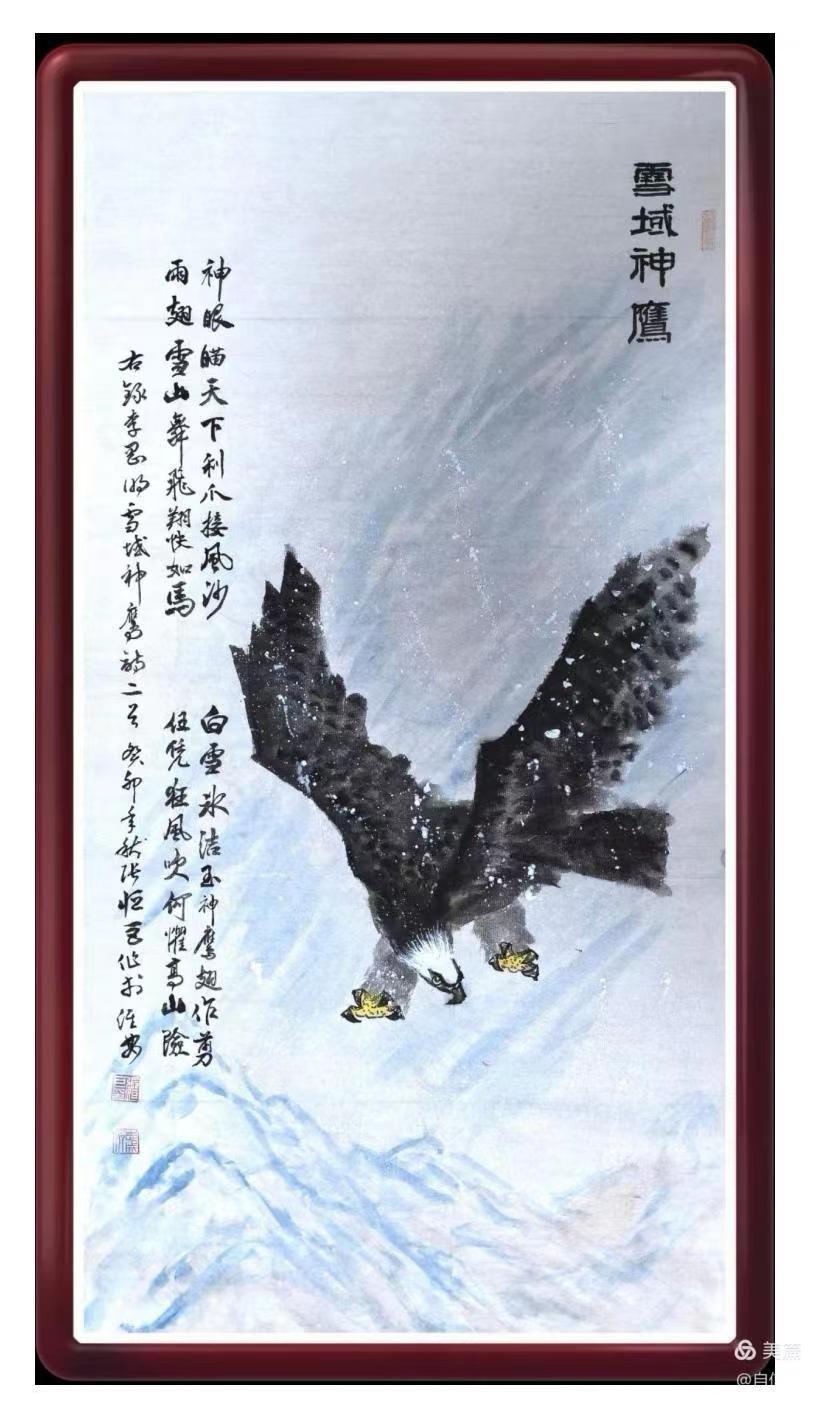 雪域神鹰
神眼瞄天下利爪接风沙
雨翅雪山舞飛翔快如馬
白雪冰洁玉神鹰翅作剪
任凭狂風吹何懼高山險
右錄李思明雪域神鹰詩二首癸卯年秋张恒邑作於淮安
美篇